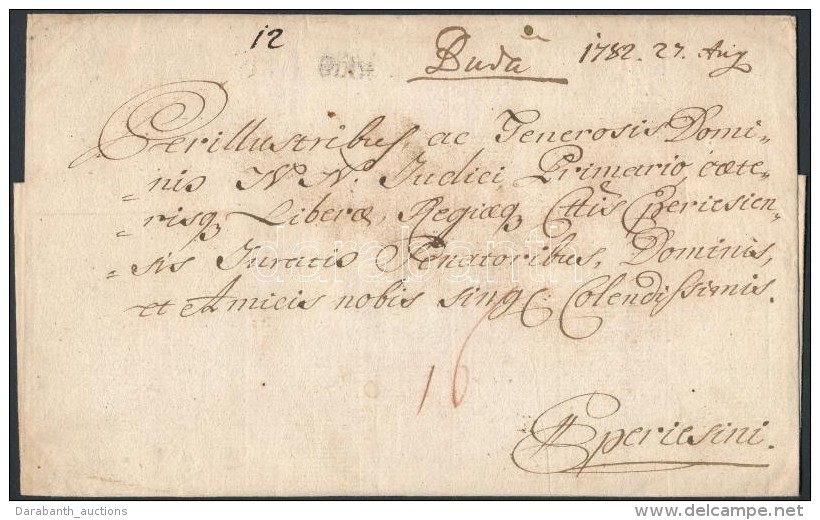 12
Ofen
Buda
1782. 27. Aug
Perillustribus ac Generosis Domi=
=nis N. N. Judici Primario, cæte=
=risq Liberæ, Regiæq Cttis Eperiesien=
=sis Juratis Senatoribus, Dominis,
et Amicis nobis sing. Colendissimis.
16
Eperiesini.
darabanth
© Darabanth_auctions
www.delcampe.net